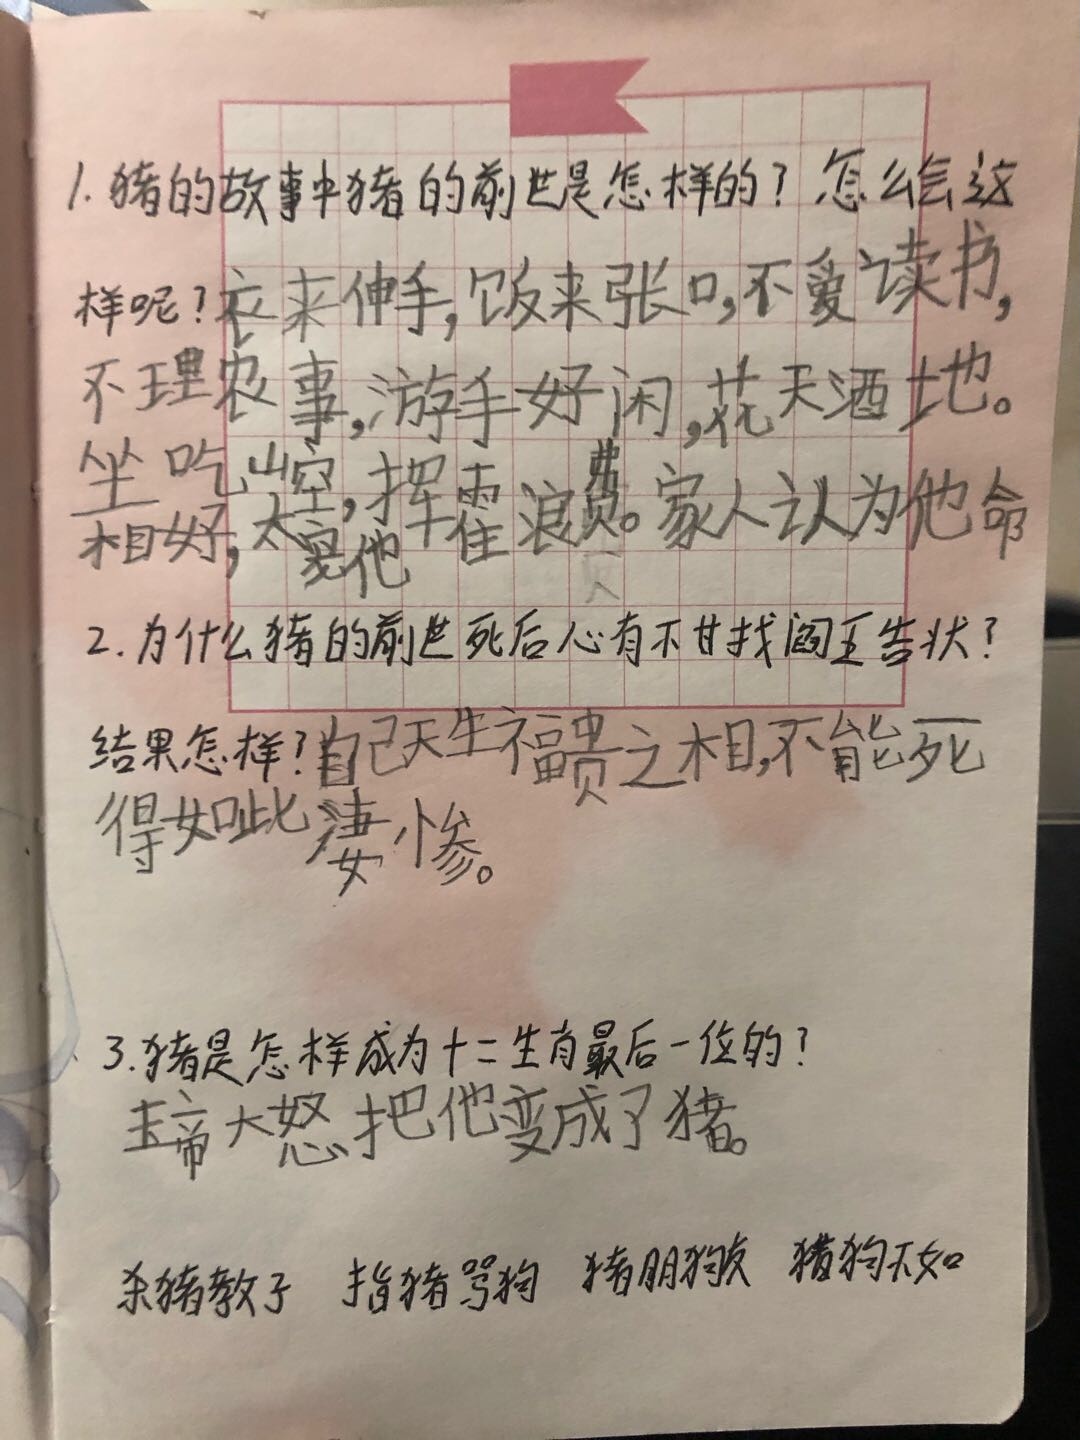 1.猪的故事中猪的前世是怎样的？怎么会这
样呢？衣来伸手,饭来张口,不爱读书,
不理农事,游手好闲,花天酒地。
坐吃山空,挥霍浪费。家人认为他命
相好,太宠他
2.为什么猪的前世死后心有不甘找阎王告状？
结果怎样？自己天生福贵之相,不能死
得如此凄惨。
3.猪是怎样成为十二生肖最后一位的？
玉帝大怒把他变成了猪。
杀猪教子 指猪骂狗 猪朋狗友 猪狗不如